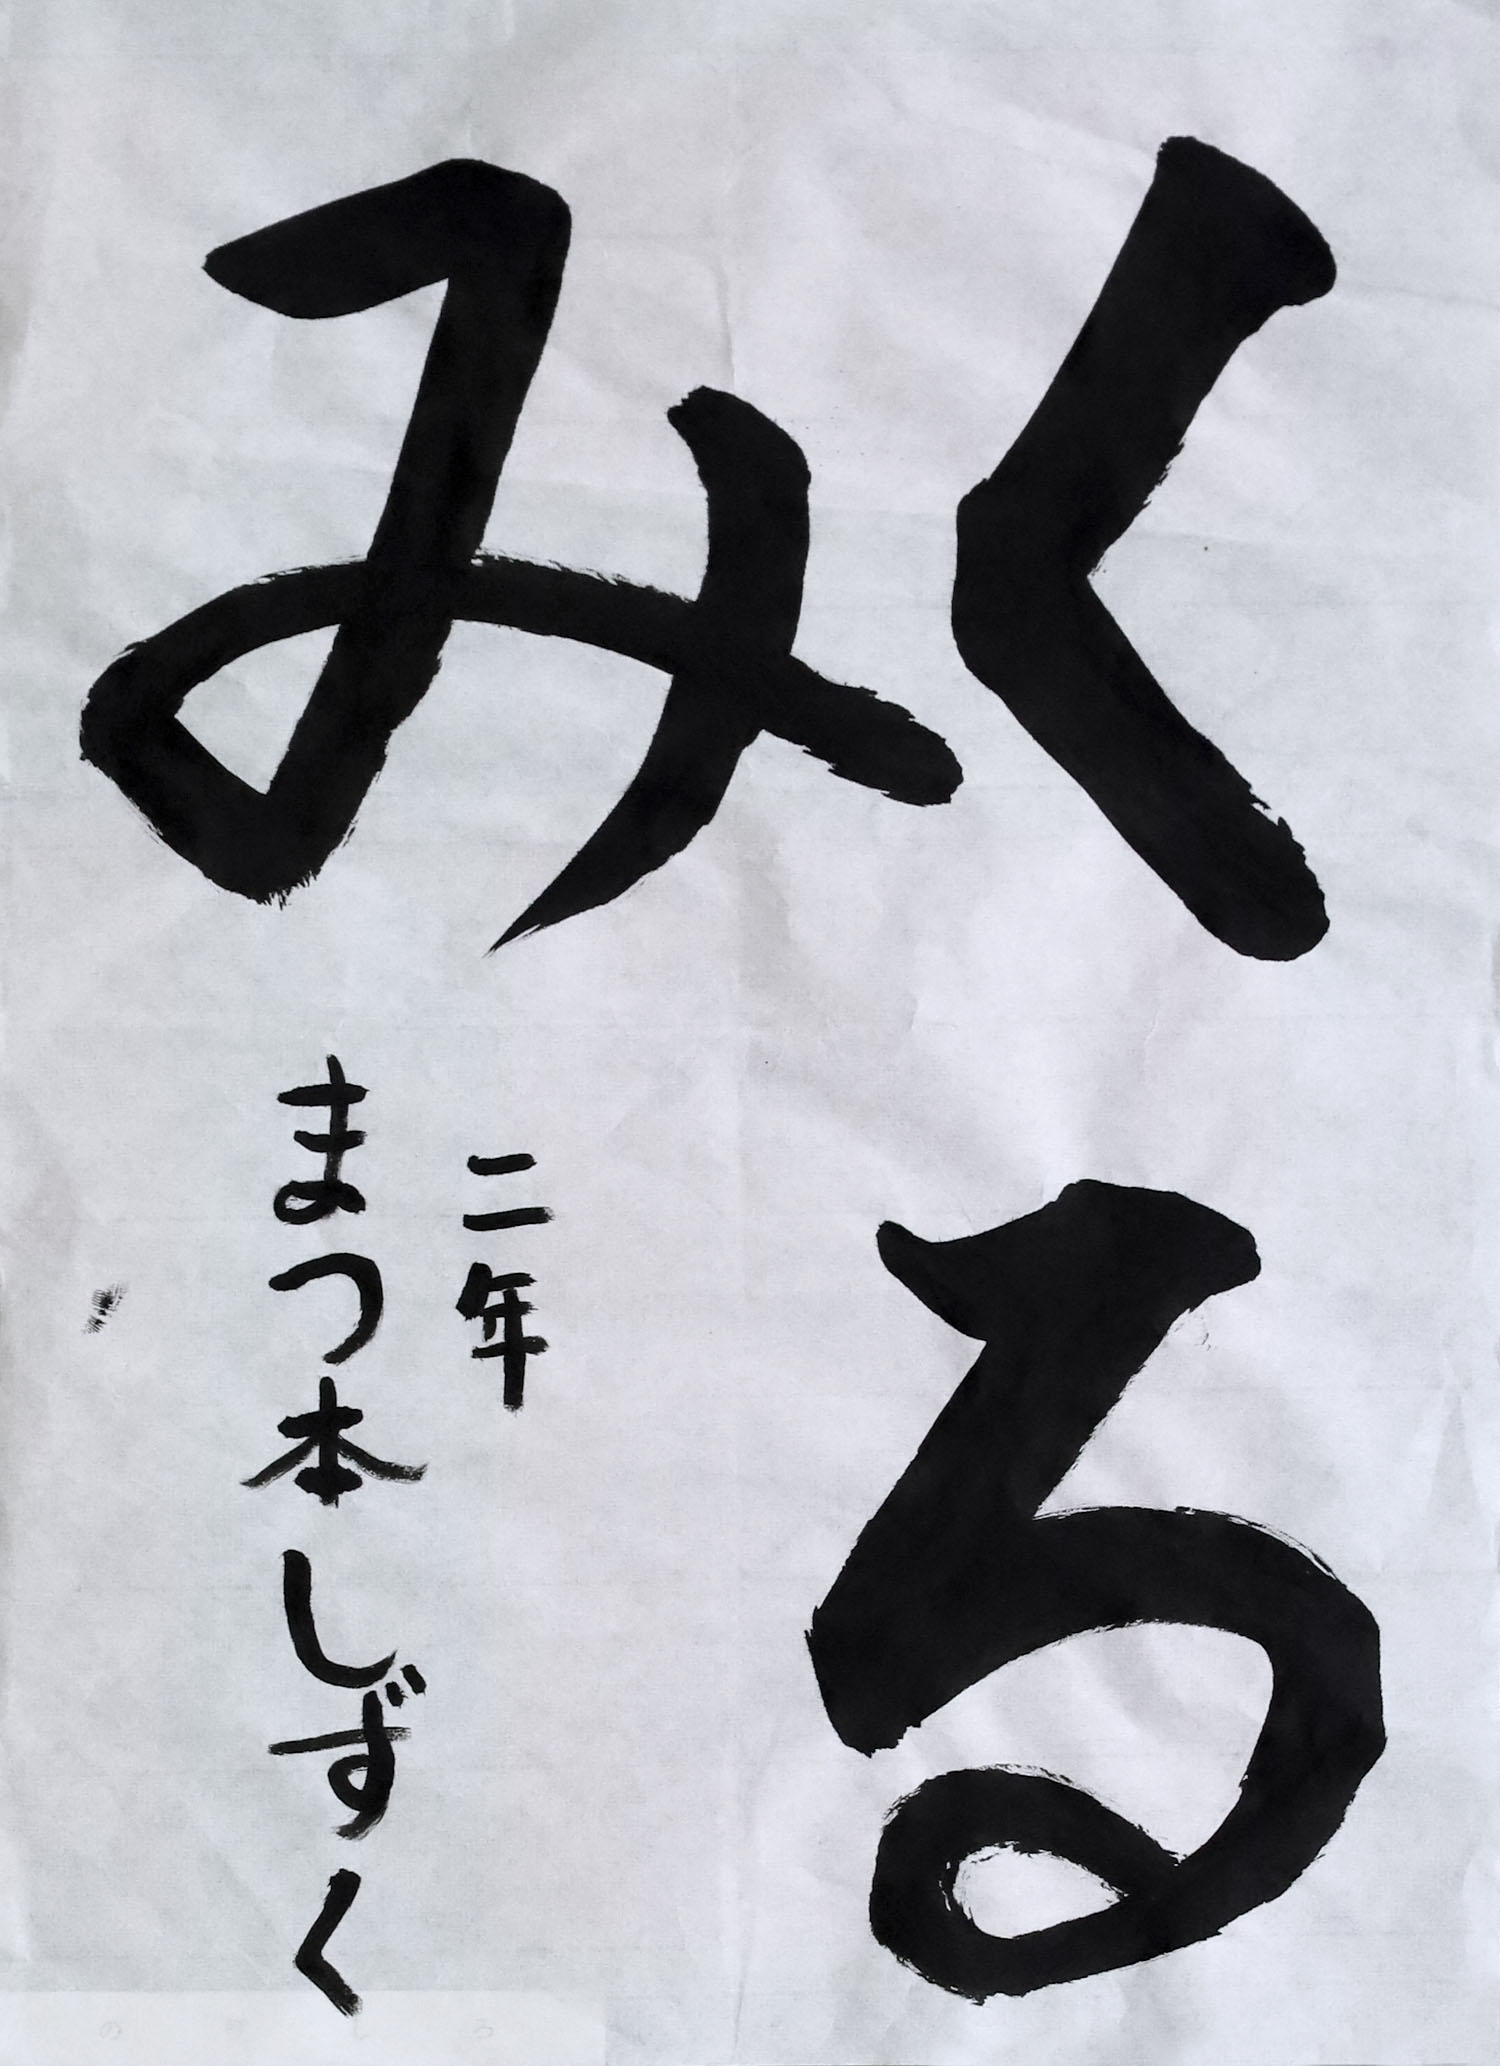 くる
み
二年
まつ本しずく